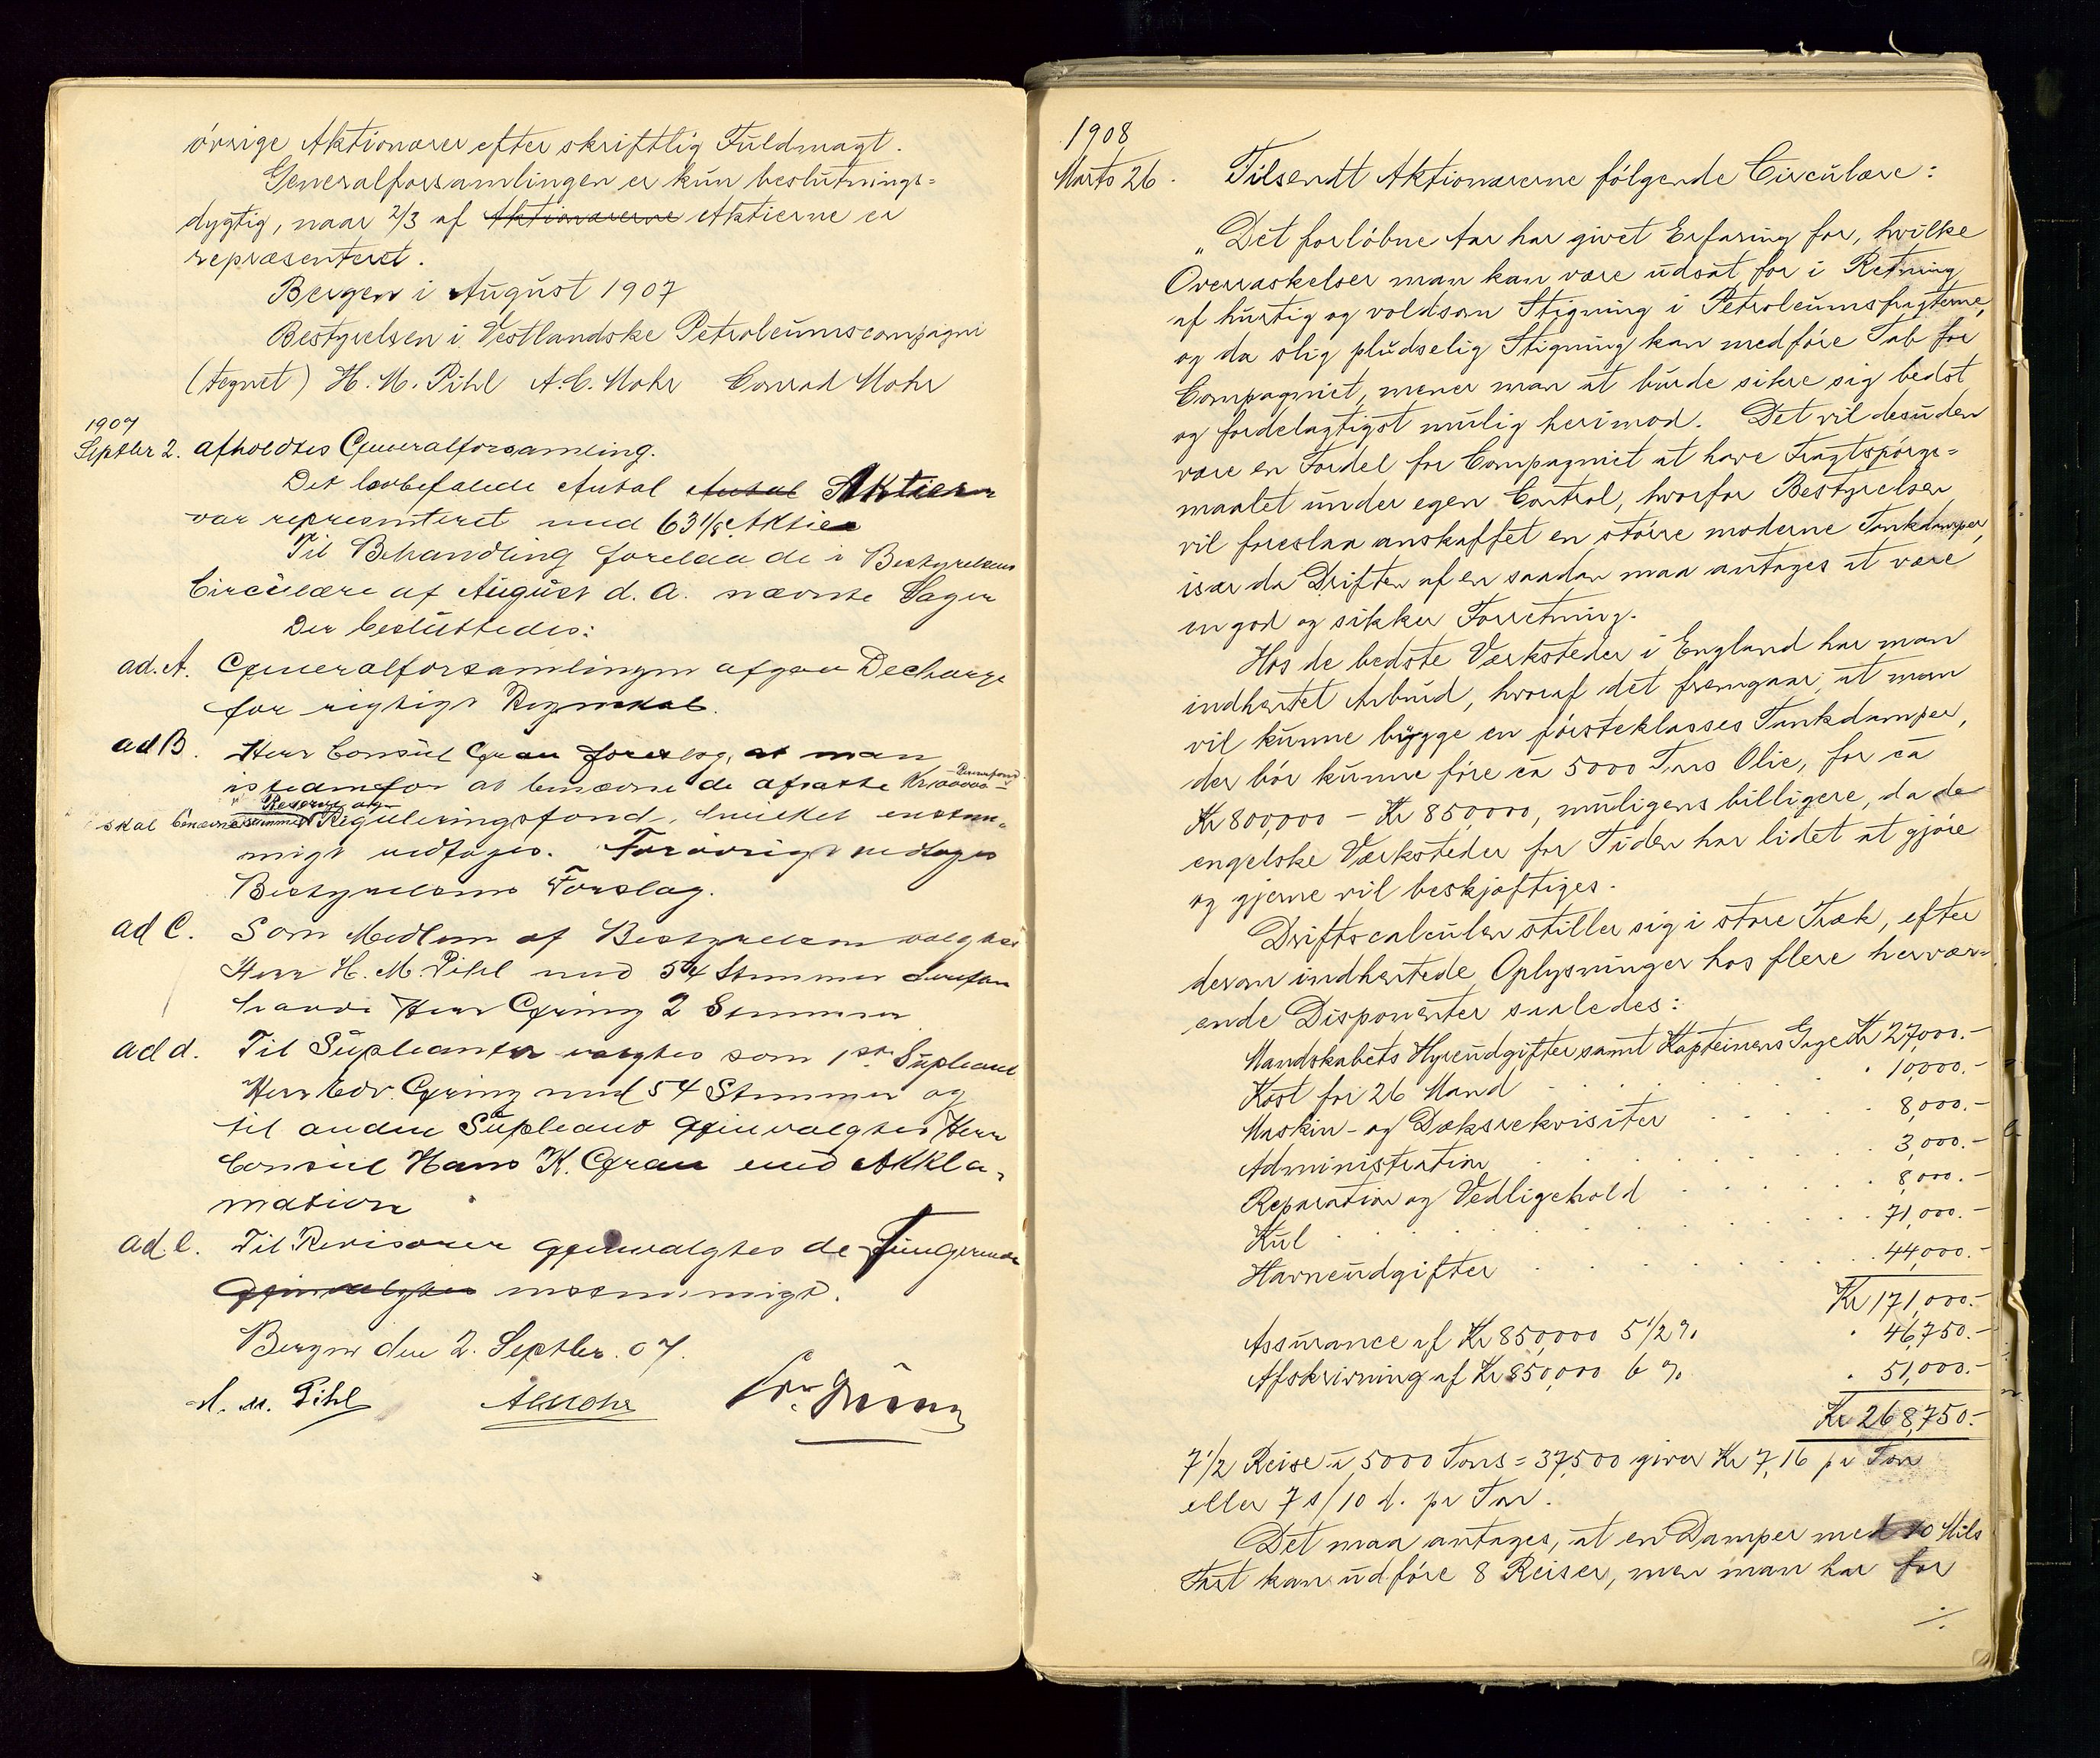 övrige Aktionærer efter skriftlig Fuldmagt.
Generalforsamlingen er kun beslutnings=
dygtig, naar 2/3 af Aktionærerne Aktierne er
repræsenteret.
Bergen i August 1907
Bestyrelsen i Vestlandske Petroleumscompagni
(tegnet) H. M. Pihl A. C. Mohr Conrad Mohr
1907
Septbr 2. afholdtes Generalforsamling.
Det lovbefalede Antal Antal Aktier
var repræsenteret med 63 1/8 Aktier
Til Behandling forelaa de i Bestyrelsens
Circulære af August d. A. nævnte Sager
Der besluttedes:
ad. A. Generalforsamlingen afgav Decharge
for rigtigt Regnskab.
ad B. Herr Consul Grau foreslog, at man
istedenfor at benævne de afsatte Kr 100000 Dampfond
skal benævne summen Reserve og Reguleringsfond, hvilket enstem=
migt vedtoges. Forövrigt vedtoges
Bestyrelsens Forslag.
ad C. Som Medlem af Bestyrelsen valgtes
Herr H. M. Pihl med 54 Stemmer
havde Herr Grieg 2 Stemmer
ad d. Til Supleanter valgtes som 1ste Supleant
Herr Edv. Grieg med 54 Stemmer og
til anden Supleant gjenvalgtes Herr
Consul Hans K. Grau med Akkla=
mation
ad. e. Til Revisorer gjenvalgtes de fungerende
gjenvalgtes enstemmigt.
Bergen den 2. Septbr. 07.
H. M. Pihl ACMohr Edv. Grieg
1908
Marts 26. Tilsendt Aktionærerne følgende Circulære:
„Det forlöbne Aar har givet Erfaring for, hvilke
Overraskelser man kan være udsat for i Retning
af hurtig og voldsom Stigning i Petroleumsfragterne,
og da slig pludselig Stigning kan medföre Tab for
Compagniet, mener man at burde sikre sig bedst
og fordelagtigst mulig herimod. Det vil desuden
være en Fordel for Compagniet at have Fragtspörgs=
maalet under egen Control, hvorfor Bestyrelsen
vil foreslaa anskaffet en större moderne Tankdamper,
især da Driften af en saadan maa antages at være
en god og sikker Forretning.
Hos de bedste Værksteder i England har man
indhentet Anbud, hvoraf det fremgaar, at man
vil kunne bygge en försteklasses Tankdamper,
der bör kunne före ca 5000 Tons Olie, for ca
Kr 800,000 - Kr 850,000, muligens billigere, da de
engelske Værksteder for Tiden har lidet at gjöre
og gjerne vil beskjæftiges.
Driftscalculen stiller sig i store Træk, efter
derom indhentede Oplysninger hos flere hervær=
ende Disponenter saaledes:
Mandskabets Hyreudgifter samt Kapteinens Gage Kr 27,000.-
Kost for 26 Mand . 10,000.-
Maskin- og Dæksrekvisiter 8,000.-
Administration 3,000.-
Reparation og Vedligehold 8,000.-
Kul 71,000.-
Havneudgifter 44,000.-
Kr 171,000.-
Assurance af Kr 850,000 5 1/2 % . 46,750.-
Afskrivning af Kr 850,000 6 % . 51,000.-
Kr 268,750.-
7 1/2 Reise à 5000 Tons = 37,500 giver Kr 7,16 pr Ton
eller 7 s/10 d. pr Ton.
Det maa antages, at en Damper med 10 Mils
Fart kan udföre 8 Reiser, men man har for
./.